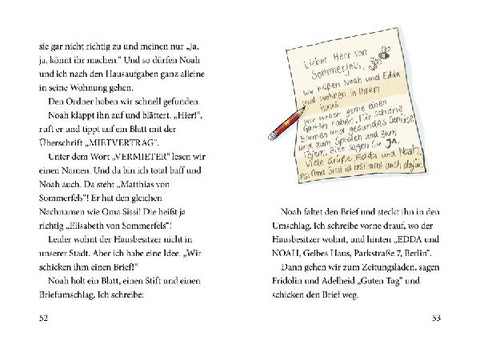 sie gar nicht richtig zu und meinen nur „Ja,
ja, könnt ihr machen.“ Und so dürfen Noah
und ich nach den Hausaufgaben ganz alleine
in seine Wohnung gehen.
Den Ordner haben wir schnell gefunden
Noah klappt ihn auf und blättert. „Hier!“,
ruft er und tippt auf ein Blatt mit der
Überschrift „MIETVERTRAG“.
Unter dem Wort „VERMIETER“ lesen wir
einen Namen. Und da bin ich total baff und
Noah auch. Da steht „Matthias von
Sommerfels“! Er hat den gleichen
Nachnamen wie Oma Sissi! Die heißt ja
richtig „Elisabeth von Sommerfels“!
Leider wohnt der Hausbesitzer nicht in
unserer Stadt. Aber ich habe eine Idee. „Wir
schicken ihm einen Brief!“
Noah holt ein Blatt, einen Stift und einen
Briefumschlag. Ich schreibe:
52
Lieber Herr von
Sommerfels,
wir heißen Noah und Edda
und wohnen in Ihrem
Haus.
Wir wollen gerne einen
Garten haben. Für schöne
Blumen und gesundes Gemüse
und zum Spielen und zum
Bitte sagen Sie JA.
Viele Grüße Edda und Noah
PS: Oma Sissi ist bestimmt auch dafür.
Noah faltet den Brief und steckt ihn in den
Umschlag. Ich schreibe vorne drauf, wo der
Hausbesitzer wohnt, und hinten „EDDA und
NOAH, Gelbes Haus, Parkstraße 7, Berlin“.
Dann gehen wir zum Zeitungsladen, sagen
Fridolin und Adelheid „Guten Tag“ und
schicken den Brief weg.
53